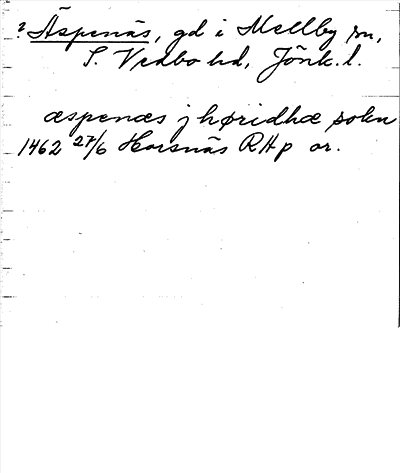 ? Äspenäs, gd i Mellby sn,
S. Vedbo hd, Jönk. l.
æspenæs j høridhæ sokn
1462 27/6 Horsnäs RAp or.